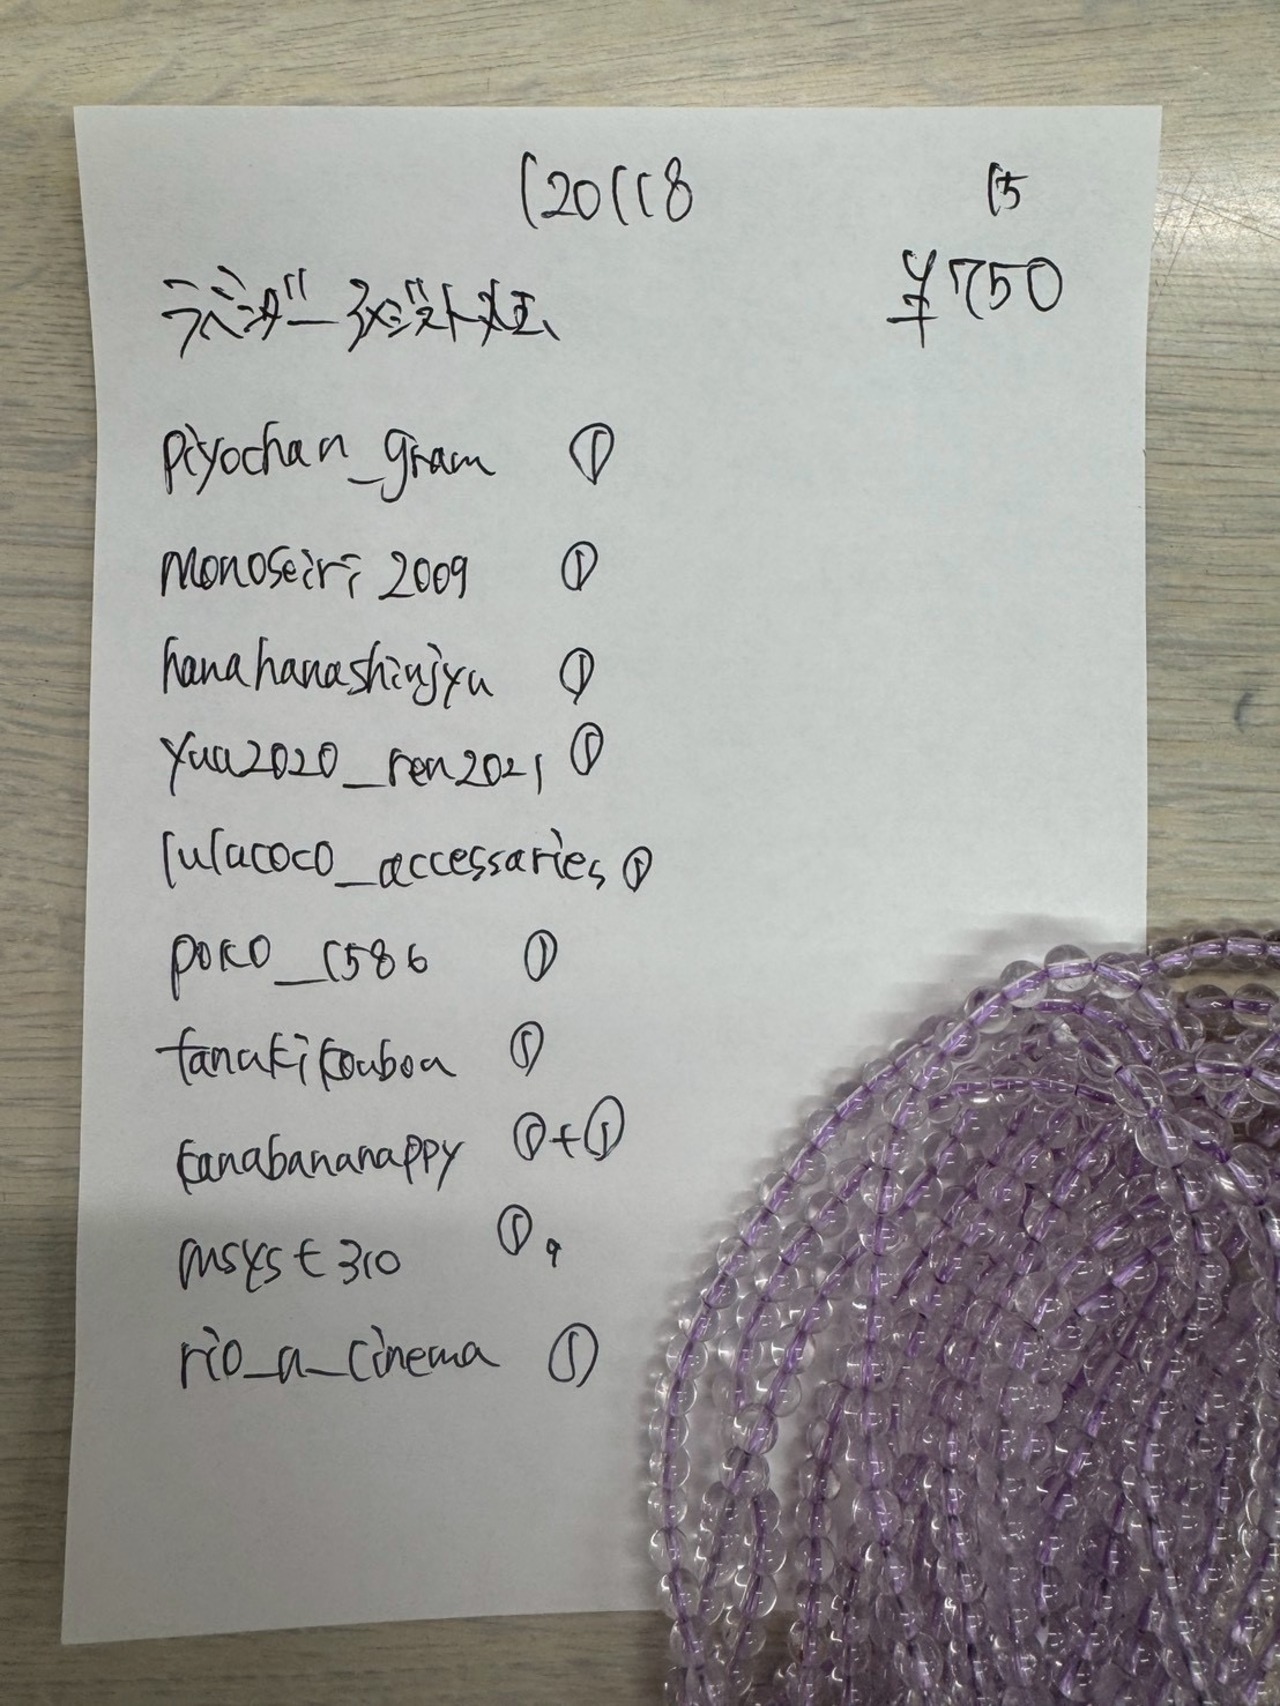 120118 15
ラベンダーアメジスト丸玉 ¥750
piyochan_gram ①
monoseiri2009 ①
hanahanashinjyu ①
yuu2020_ren2021 ①
lulacoco_accessaries ①
poko_1586 ①
tanukikoubou ①
kanabananappy ①+①
msyst310 ①,
rio_a_cinema ①